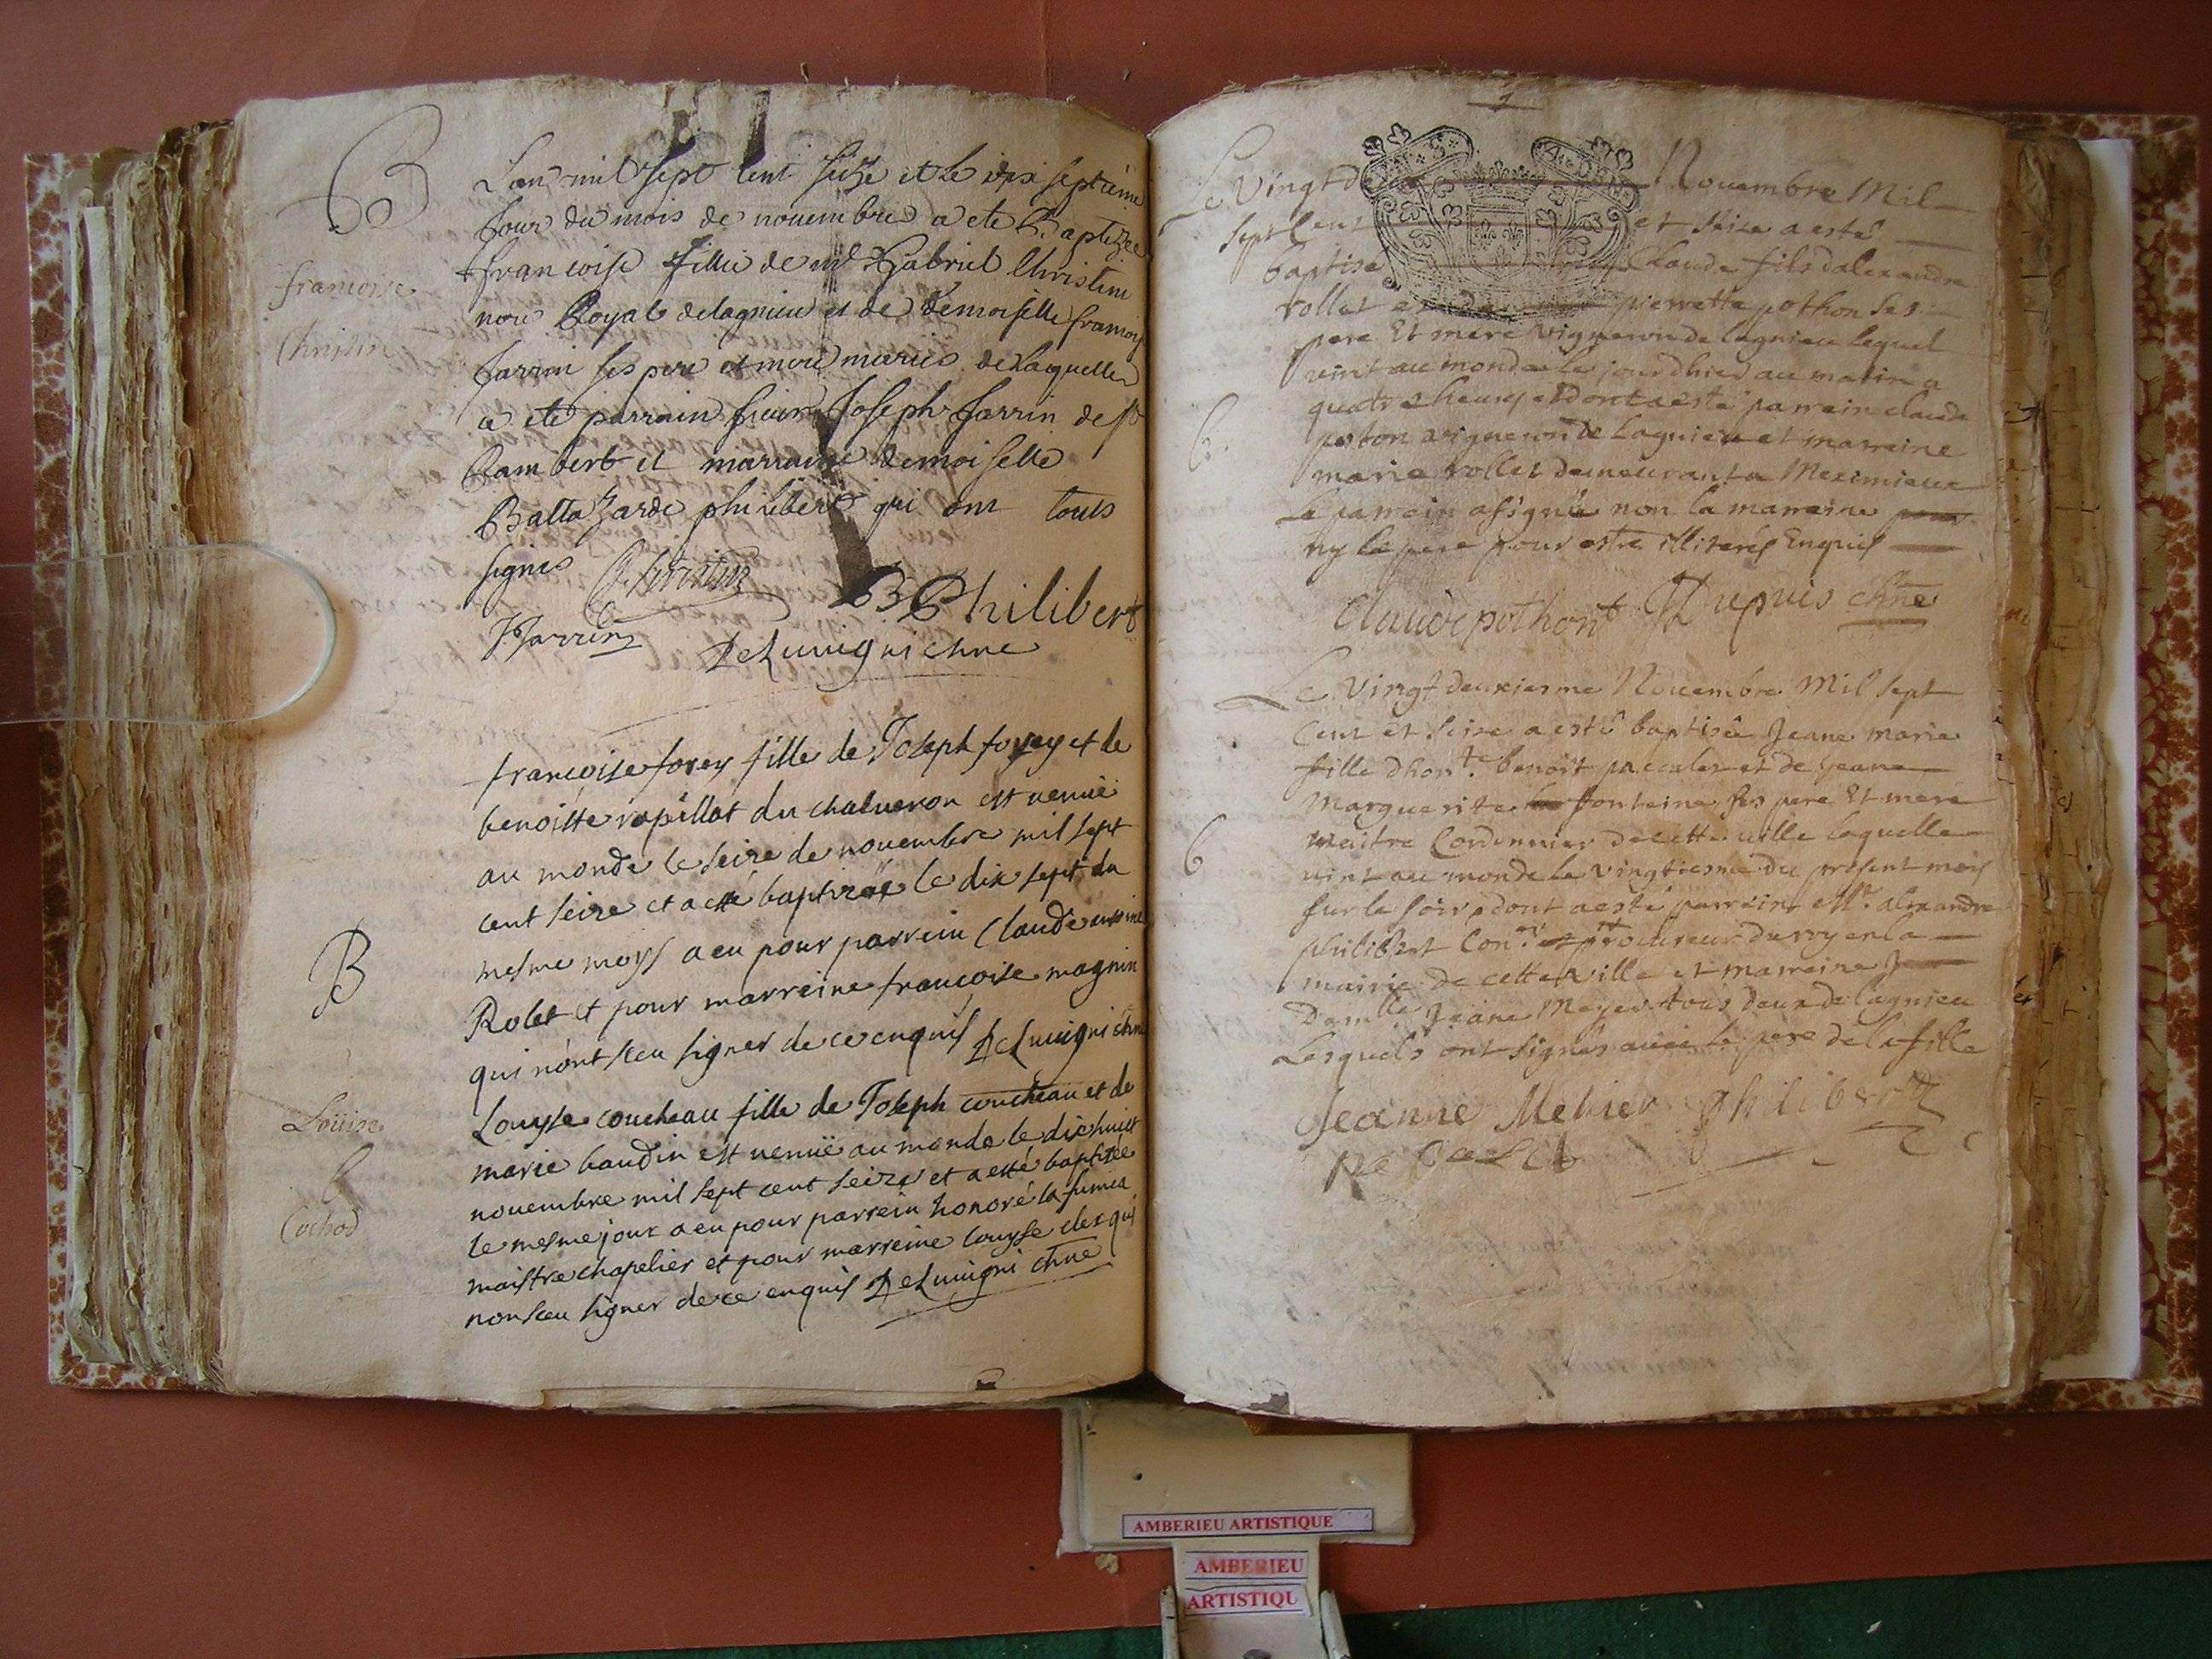 B
francoise
Christin
Lan mil sept cent seize et le dix septieme
Jour du mois de nouembre a ete Baptizee
francoise fille de mr Gabriel Christin
nore Royal delagnieu et de demoiselle francoise
Jarrin ses pere et mere maries de laquelle
a ete parrain sieur Joseph Jarrin de st
Rambert et marraine demoiselle
Baltazarde philibert qui ont tous
signes Christin
B Philibert
Jarrin
DeLuuigni chne
B
francoise forey fille de Joseph forey et de
benoitte rapillat du chalueron est venuë
au monde le seize de nouembre mil sept
cent seize et a esté baptizée le dix sept du
mesme moys a eu pour parrein Claude
Rolet et pour marreine francoise magnin
qui n'ont sceu signer de ce enquis DeLuuigni chne
Loüise
b
Cochod
Louyse coucheau fille de Joseph coucheau et de
marie baudin est venuë au monde le dixhuict
nouembre mil sept cent seize et a esté baptisée
le mesme jour a eu pour parrein honoré la fumea
maistre chapelier et pour marreine louyse clex qui
non sceu signer de ce enquis DeLuuigni chne
1
Le Vingt d Nouembre Mil
Sept Cent et seize a esté
baptisé Claude fils dalexandre
rollet et de pierrette pothon ses
pere Et mere vigneron de lagnieu lequel
vint au monde le jourdhier au matin a
quatre heures dont a esté parrein claude
b.
poton vigneron de Lagnieu et marreine
marie rollet demeurant a Meximieux
Le parrein a signé non la marreine
ny le pere pour estre illiterés Enquis
claude pothont Dupuis chne
Le Vingt deuxiesme Nouembre Mil sept
Cent et seize a esté baptisée Jeane marie
fille dhonte. benoit pascalet et de jeane
Marguerite fonteine ses pere Et mere
b
maitre Cordonnier de cette ville laquelle
vint au monde le vingtiesme du present mois
sur le soir dont a esté parrein Mr. alexandre
philibert Conr procureur du roy en la
mairie de cette ville et marreine
Damlle Jeane Meyer tous deux de lagnieu
Lesquels ont signés auec le pere de la fille
Jeanne Mehier Philibert
AMBERIEU ARTISTIQUE
AMBERIEU
ARTISTIQU